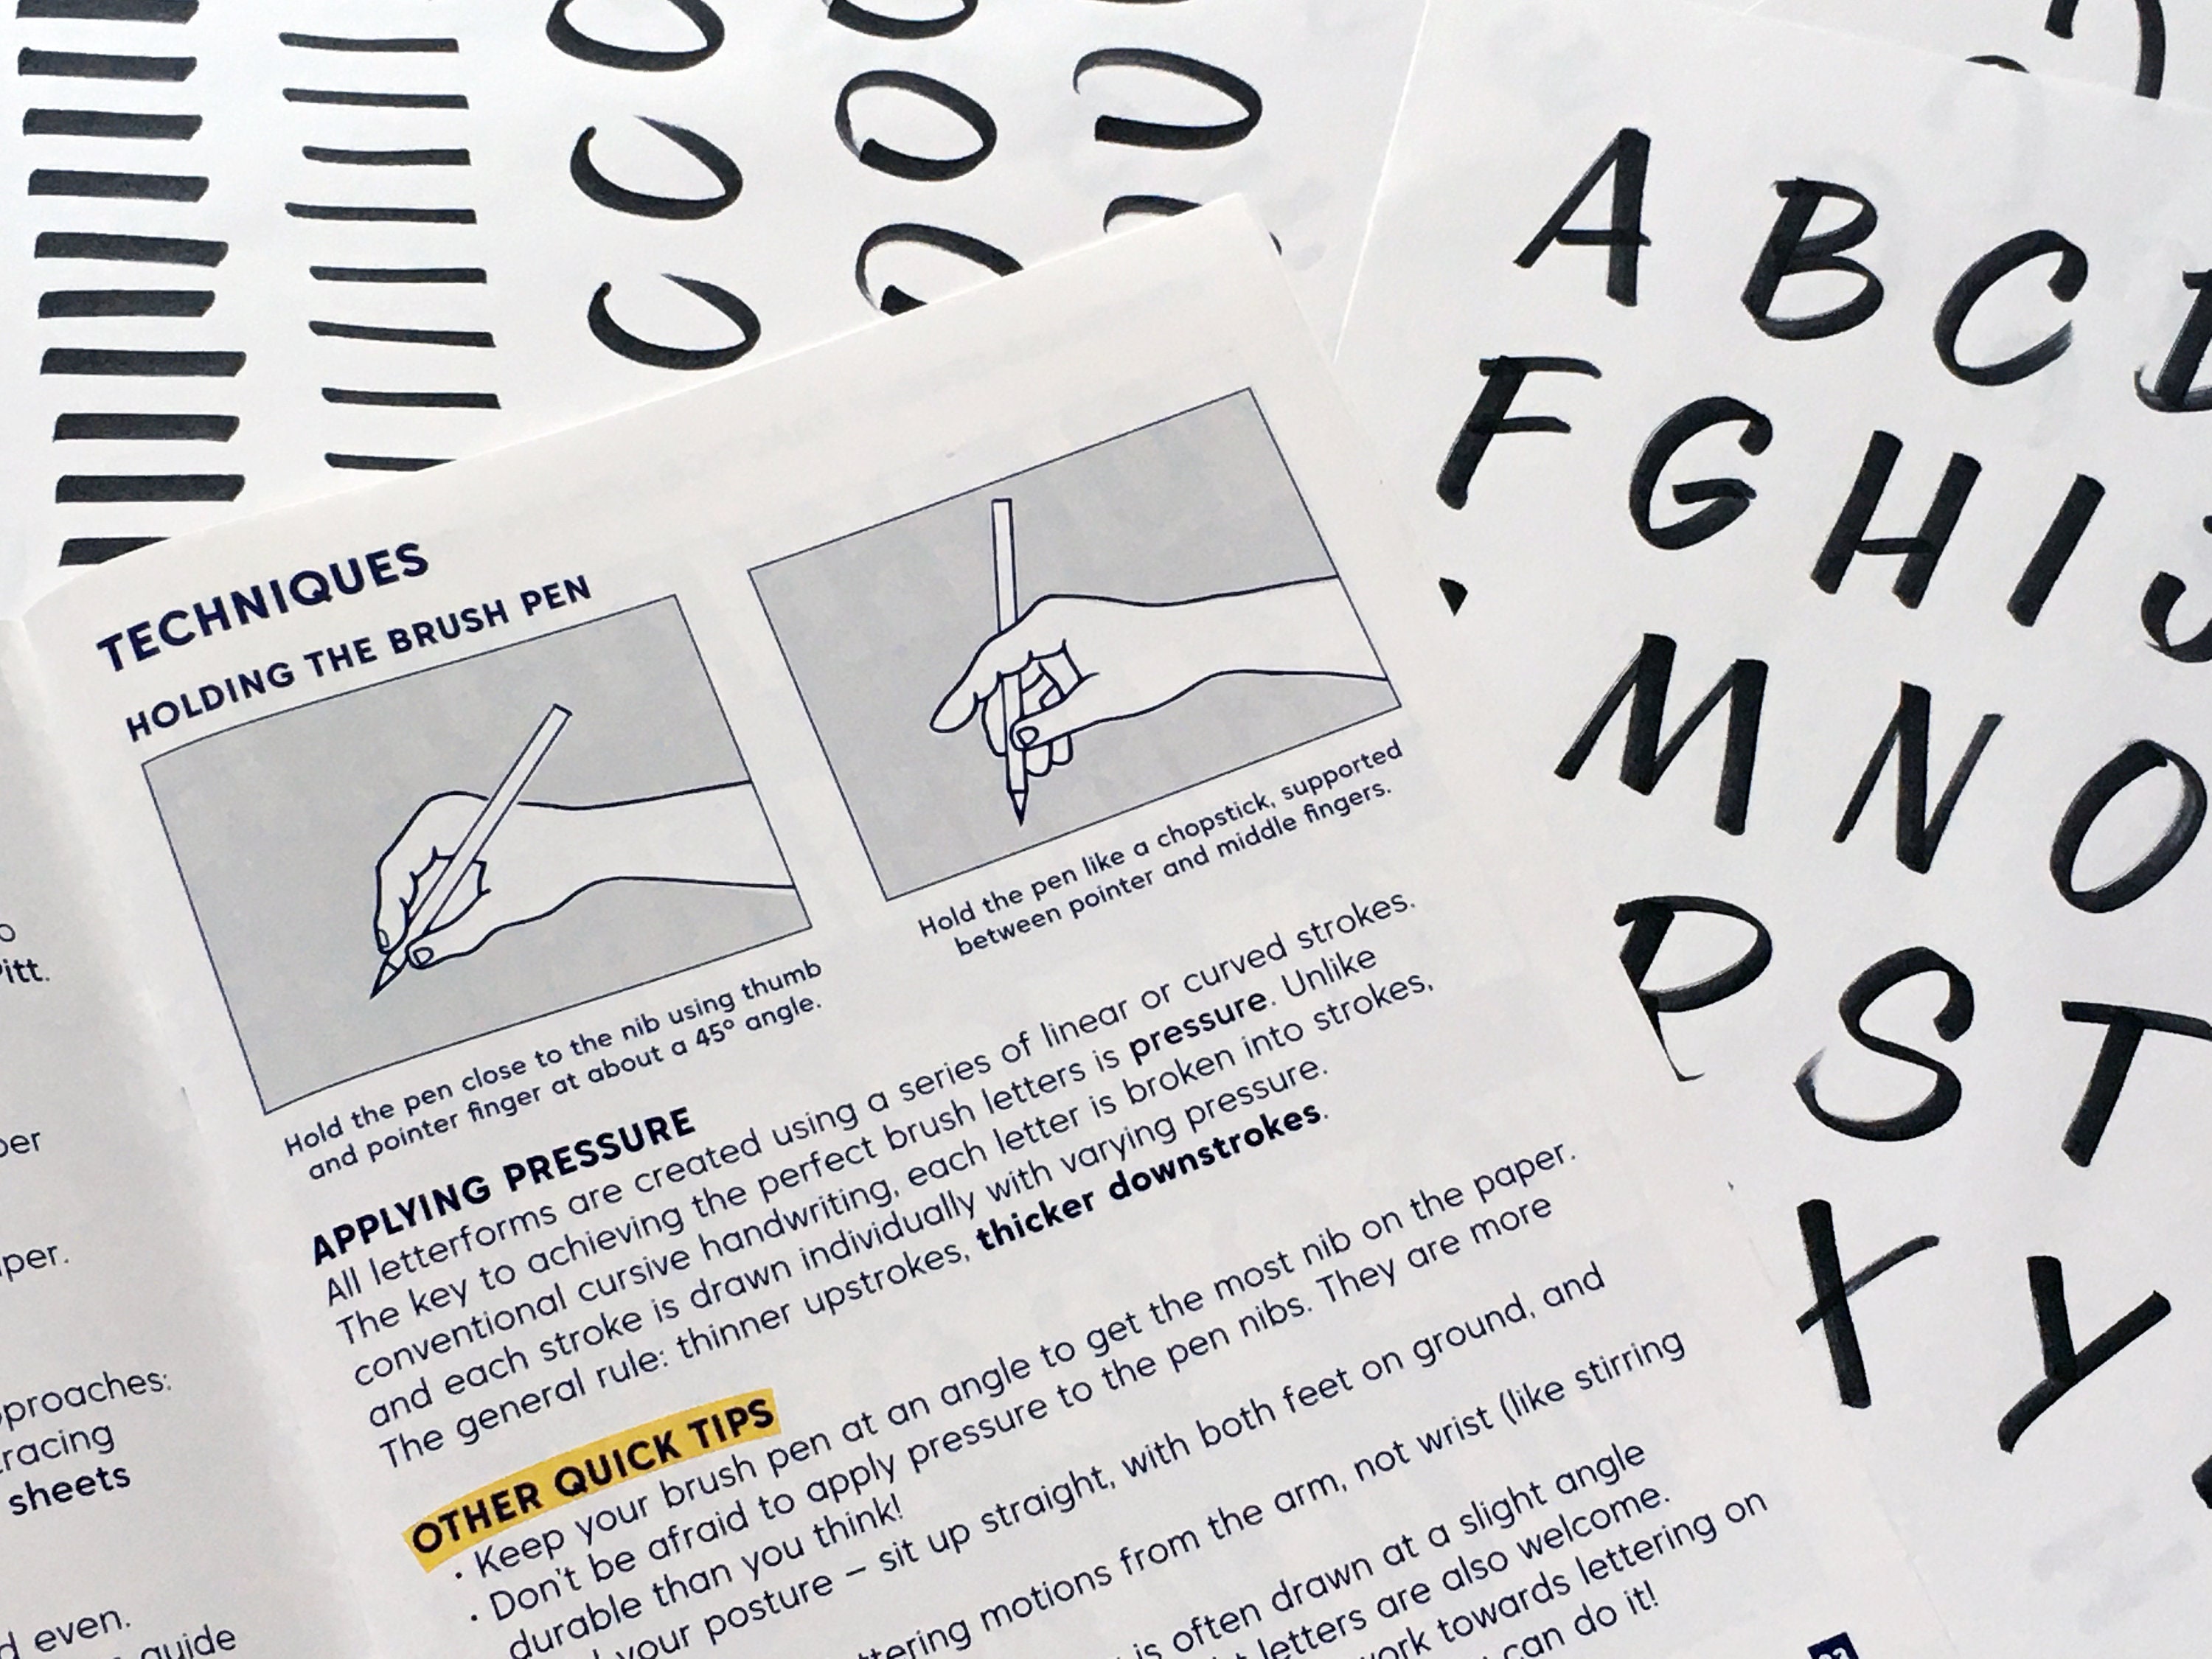 TECHNIQUES
HOLDING THE BRUSH PEN
Hold the pen close to the nib using thumb
and pointer finger at about a 45° angle.
Hold the pen like a chopstick, supported
between pointer and middle fingers.
APPLYING PRESSURE
All letterforms are created using a series of linear or curved strokes.
The key to achieving the perfect brush letters is pressure. Unlike
conventional cursive handwriting, each letter is broken into strokes,
and each stroke is drawn individually with varying pressure.
The general rule: thinner upstrokes, thicker downstrokes.
OTHER QUICK TIPS
· Keep your brush pen at an angle to get the most nib on the paper.
· Don't be afraid to apply pressure to the pen nibs. They are more
durable than you think!
your posture – sit up straight, with both feet on ground, and
motions from the arm, not wrist (like stirring
is often drawn at a slight angle
letters are also welcome.
towards lettering on
can do it!
sheets
even.
guide
A B C
F G H I J
M N O
P S T
X Y
C O U
C O U
C